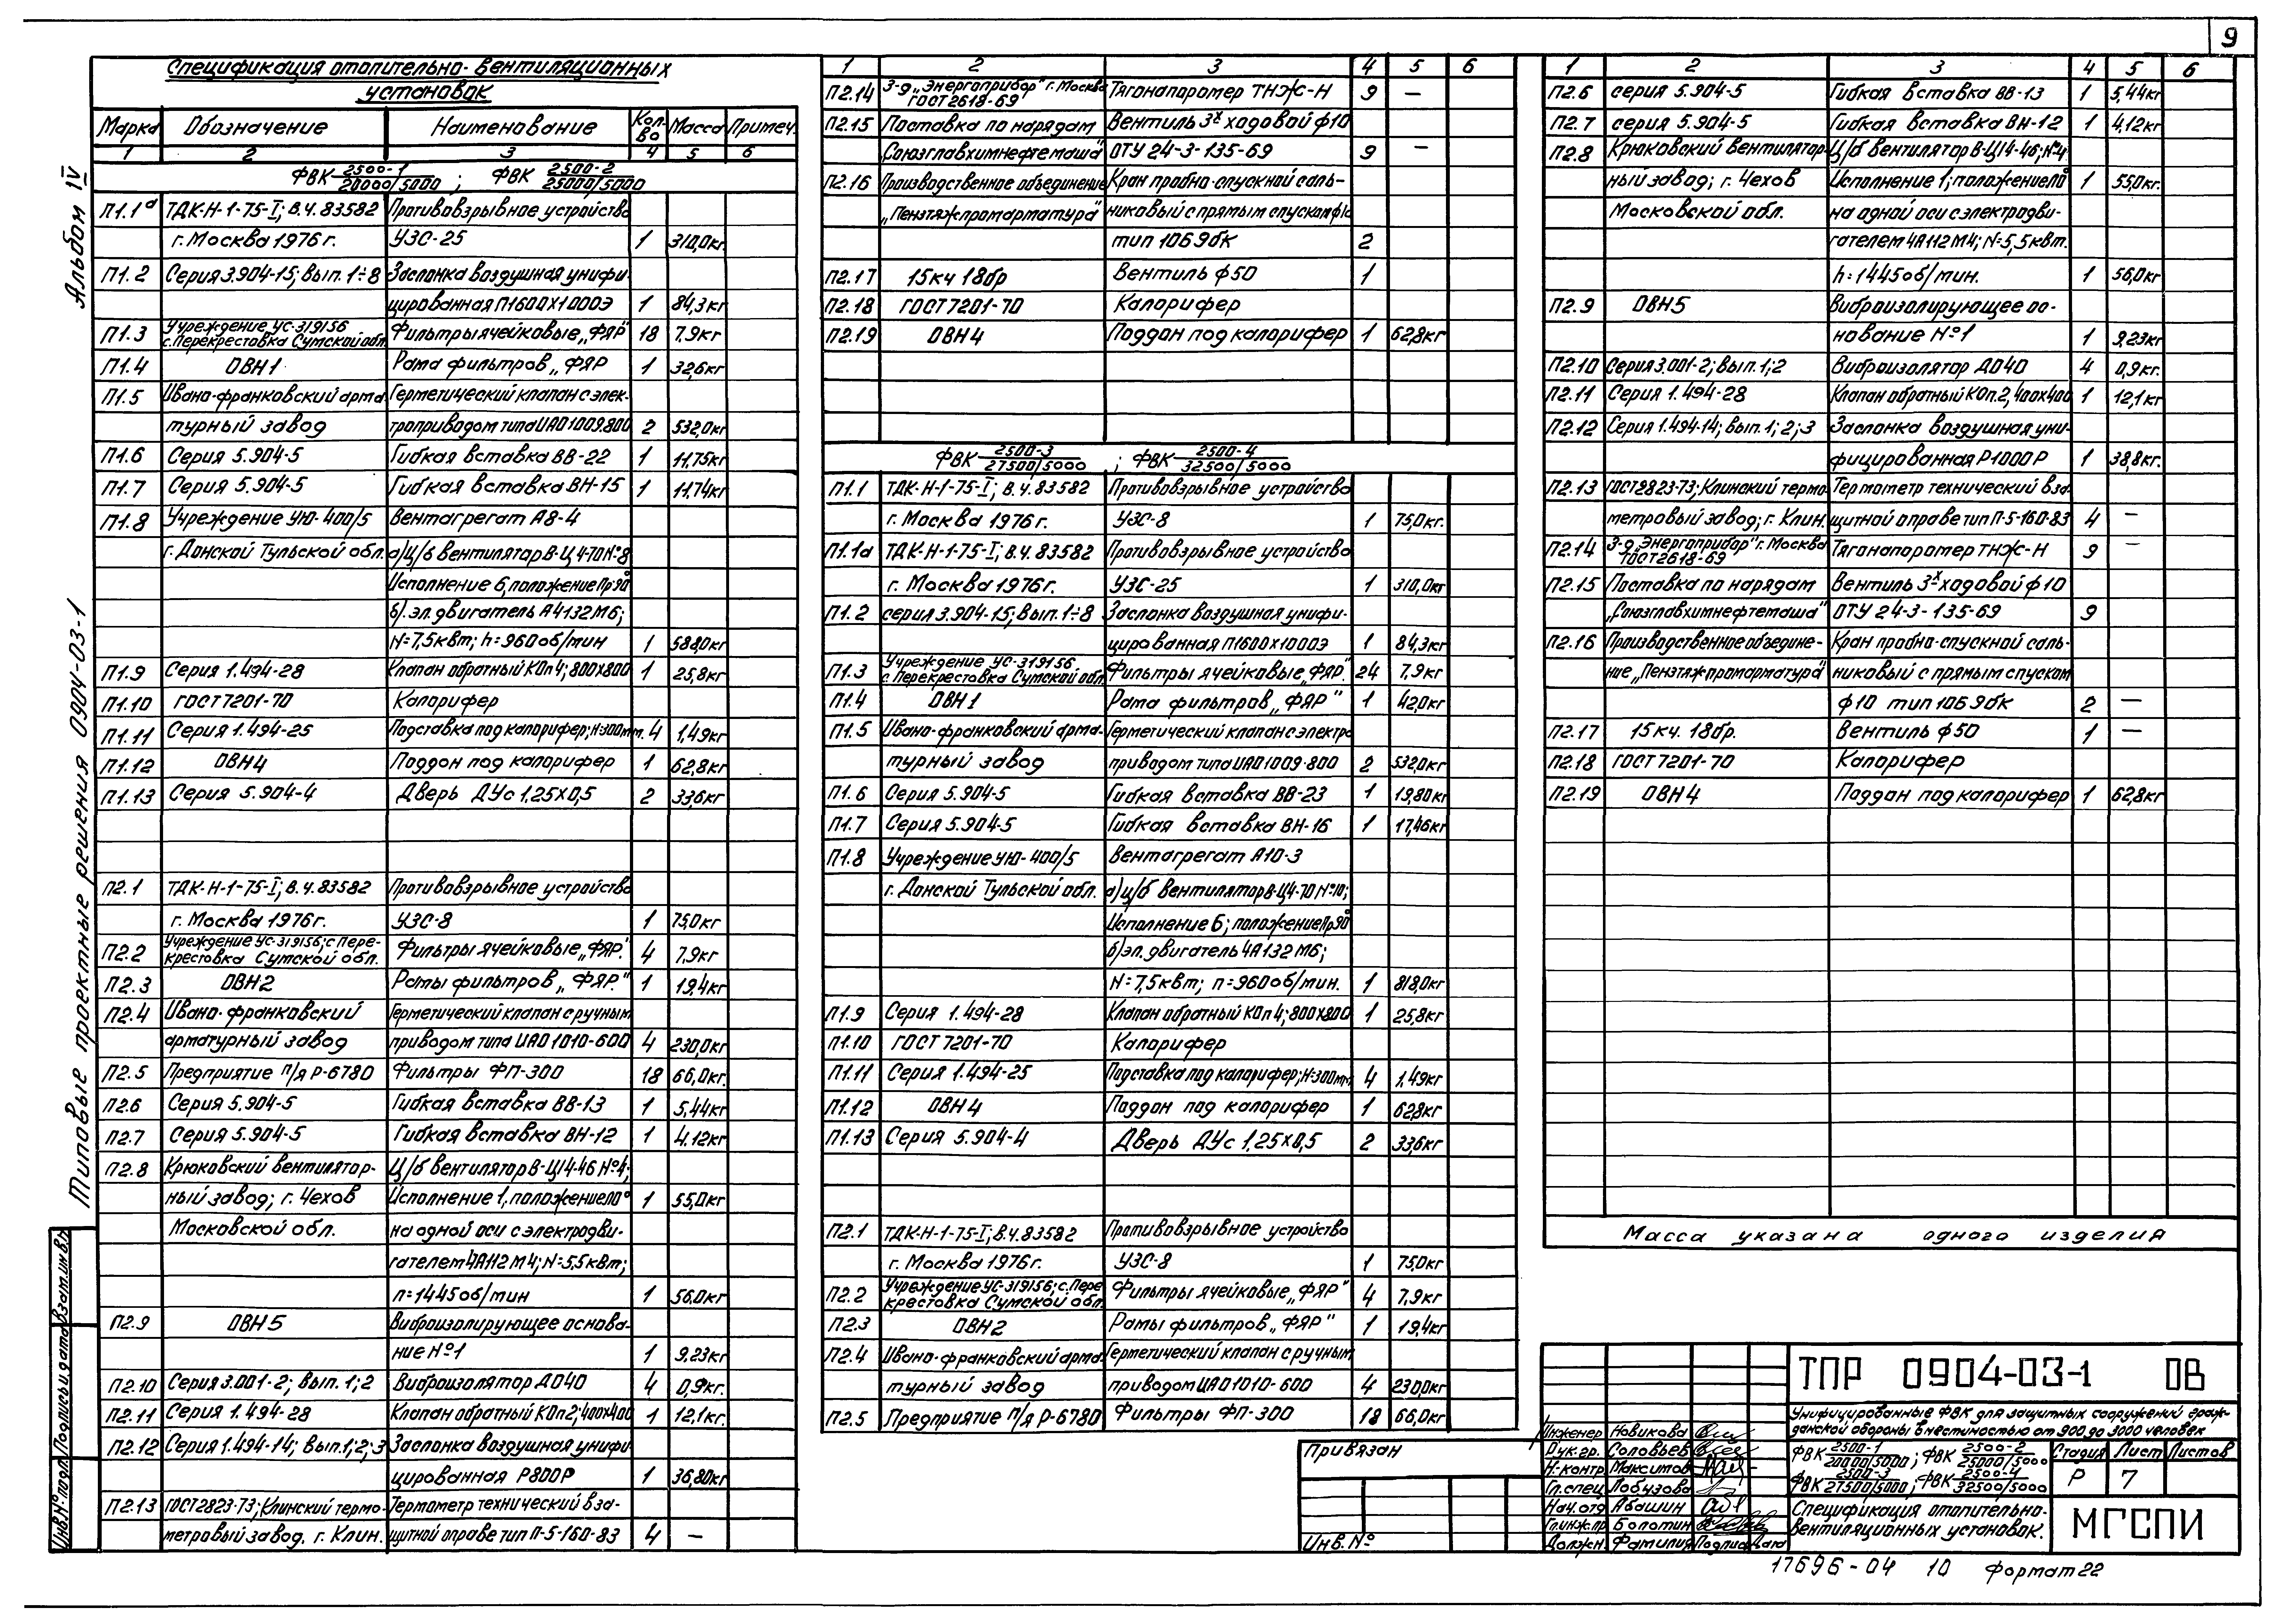 9
Альбом IV
Типовые проектные решения 0904-03-1
Спецификация отопительно-вентиляционных
установок
Марка Обозначение Наименование Кол-во Масса Примеч.
1 2 3 4 5 6
ФВК 2500-1 20000/5000 ; ФВК 2500-2 25000/5000
П1.1а ТДК-Н-1-75-I; В.Ч. 83582 Противовзрывное устройство
г. Москва 1976 г. УЗС-25 1 310,0кг.
П1.2 Серия 3.904-15; Вып. 1÷8 Заслонка воздушная унифи-
цированная П1600х1000Э 1 84,3кг
П1.3 Учреждение УС-319156 с. Перекрестовка Сумской обл. Фильтры ячейковые „ФЯР" 18 7.9кг
П1.4 ОВН1 Рама фильтров „ФЯР 1 32,6кг
П1.5 Ивано-франковский арма- Герметический клапан с элек-
турный завод троприводом типа ИА01009.800 2 532,0кг
П1.6 Серия 5.904-5 Гибкая вставка ВВ-22 1 11,75кг
П1.7 Серия 5.904-5 Гибкая вставка ВН-15 1 11,74кг
П1.8 Учреждение УЮ-400/5 Вентагрегат А8-4
г. Донской Тульской обл. а) Ц/б вентилятор В-Ц4-70 №8
Исполнение 6, положение Пр90°
б). эл. двигатель А4132М6;
N=7,5квт; h=960об/мин 1 588,0кг
П1.9 Серия 1.494-28 Клапан обратный КОп4; 800х800 1 25,8кг
П1.10 ГОСТ 7201-70 Калорифер
П1.11 Серия 1.494-25 Подставка под калорифер; Н=300мм. 4 1,49кг
П1.12 ОВН4 Поддон под калорифер 1 62,8кг
П1.13 Серия 5.904-4 Дверь ДУс 1,25х0,5 2 33,6кг
П2.1 ТДК-Н-1-75-I; В.Ч. 83582 Противовзрывное устройство
г. Москва 1976г. УЗС-8 1 75,0кг
П2.2 Учреждение УС-319156; с Пере-крестовка Сумской обл. Фильтры ячейковые „ФЯР." 4 7,9кг
П2.3 ОВН2 Рамы фильтров „ФЯР." 1 19,4кг
П2.4 Ивано-франковский Герметический клапан с ручным
арматурный завод приводом типа ИА01010-600 4 230,0кг
П2.5 Предприятие п/я Р-6780 Фильтры ФП-300 18 66,0кг.
П2.6 Серия 5.904-5 Гибкая вставка ВВ-13 1 5,44кг
П2.7 Серия 5.904-5 Гибкая вставка ВН-12 1 4,12кг
П2.8 Крюковский вентилятор- Ц/б вентилятор В-Ц14-46 №4;
ный завод; г. Чехов Исполнение 1, положение Л0° 1 55,0кг
Московской обл. на одной оси с электродви-
гателем 4А112М4; N=5,5квт;
n=1445об/мин 1 56,0кг
П2.9 ОВН5 Виброизолирующее основа-
ние №1 1 9,23кг
П2.10 Серия 3.001-2; Вып. 1;2 Виброизолятор ДО40 4 0,9кг.
П2.11 Серия 1.494-28 Клапан обратный КОп2; 400х400 1 12,1кг.
П2.12 Серия 1.494-14; Вып. 1; 2; 3 Заслонка воздушная унифи-
цированная Р800Р 1 36,80кг
П2.13 ГОСТ2823-73; Клинский термо- Термометр технический в за-
метровый завод. г. Клин. щитной оправе тип П-5-160-83 4 —
1 2 3 4 5 6
П2.14 З-д „Энергоприбор" г. Москва ГОСТ2618-69 Тягонапоромер ТНЖ-Н 9 —
П2.15 Поставка по нарядам Вентиль 3х ходовой ф10
„Союзглавхимнефтемаша" ОТУ 24-3-135-69 9 —
П2.16 Производственное объединение Кран пробно-спускной саль-
„Пензтяжпромарматура" никовый с прямым спуском ф10
тип 10Б9бк 2
П2.17 15кч 18бр Вентиль ф50 1
П2.18 ГОСТ7201-70 Калорифер
П2.19 ОВН4 Поддон под калорифер 1 62,8кг
ФВК 2500-3 27500/5000 ; ФВК 2500-4 32500/5000
П1.1 ТДК-Н-1-75-I; В.Ч. 83582 Противовзрывное устройство
г. Москва 1976г. УЗС-8 1 75,0кг.
П1.1а ТДК-Н-1-75-I; В.Ч. 83582 Противовзрывное устройство
г. Москва 1976г. УЗС-25 1 310,0кг
П1.2 серия 3.904-15; Вып. 1÷8 Заслонка воздушная унифи-
цированная П1600х1000Э 1 84,3кг
П1.3 Учреждение УС-319156 с. Перекрестовка Сумской обл. Фильтры ячейковые „ФЯР" 24 7,9кг
П1.4 ОВН1 Рама фильтров „ФЯР" 1 42,0кг
П1.5 Ивано-франковский арма- Герметический клапан с электро
турный завод приводом типа ИА01009-800 2 532,0кг
П1.6 Серия 5.904-5 Гибкая вставка ВВ-23 1 19,80кг
П1.7 Серия 5.904-5 Гибкая вставка ВН-16 1 17,46кг
П1.8 Учреждение УЮ-400/5 Вентагрегат А10-3
г. Донской Тульской обл. а) ц/б вентилятор В-Ц4-70 №10;
Исполнение 6; положение Пр90°
б) эл. двигатель 4А132М6;
N=7,5квт; n=960об/мин. 1 818,0кг
П1.9 Серия 1.494-28 Клапан обратный КОп4; 800х800 1 25,8кг
П1.10 ГОСТ 7201-70 Калорифер
П1.11 Серия 1.494-25 Подставка под калорифер; Н=300мм 4 1,49кг
П1.12 ОВН4 Поддон под калорифер 1 62,8кг
П1.13 Серия 5.904-4 Дверь ДУс 1,25х0,5 2 33,6кг
П2.1 ТДК-Н-1-75-I; В.Ч. 83582 Противовзрывное устройство
г. Москва 1976г. УЗС-8 1 75,0кг
П2.2 Учреждение УС-319156; с. Пере крестовка Сумской обл. Фильтры ячейковые „ФЯР" 4 7,9кг
П2.3 ОВН2 Рамы фильтров „ФЯР" 1 19,4кг
П2.4 Ивано-франковский арма- Герметический клапан с ручным
турный завод приводом ИА01010-600 4 230,0кг
П2.5 Предприятие п/я Р-6780 Фильтры ФП-300 18 66,0кг
1 2 3 4 5 6
П2.6 серия 5.904-5 Гибкая вставка ВВ-13 1 5,44кг
П2.7 серия 5.904-5 Гибкая вставка ВН-12 1 4,12кг
П2.8 Крюковский вентилятор- Ц/б вентилятор В-Ц14-46; №4
ный завод; г. Чехов Исполнение 1; положение Л0° 1 55,0кг.
Московской обл. на одной оси с электродви-
гателем 4А112М4; N=5,5квт.
h=1445об/мин. 1 56,0кг
П2.9 ОВН5 Виброизолирующее ос-
нование №1 1 9,23кг
П2.10 Серия 3.001-2; Вып. 1;2 Виброизолятор ДО40 4 0,9кг.
П2.11 Серия 1.494-28 Клапан обратный КОп.2, 400х400 1 12,1кг
П2.12 Серия 1.494-14; Вып. 1; 2; 3 Заслонка воздушная уни-
фицированная Р1000Р 1 38,8кг.
П2.13 ГОСТ2823-73; Клинский термо- Термометр технический в за-
метровый завод; г. Клин. щитной оправе тип П-5-160-83 4 —
П2.14 З-д „Энергоприбор" г. Москва ГОСТ2618-69 Тягонапоромер ТНЖ-Н 9 —
П2.15 Поставка по нарядам Вентиль 3х ходовой ф10
„Союзглавхимнефтемаша" ОТУ 24-3-135-69 9
П2.16 Производственное объедине- Кран пробно-спускной саль-
ние „Пензтяжпромарматура" никовый с прямым спуском
ф10 тип 10Б9бк 2 —
П2.17 15кч. 18бр. Вентиль ф50 1 —
П2.18 ГОСТ7201-70 Калорифер
П2.19 ОВН4 Поддон под калорифер 1 62,8кг
Масса указана одного изделия
Взам.инв.№
Подпись и дата
Инв.№ подл.
Привязан
Инв. №
Инженер Новикова
Рук.гр. Соловьев
Н.контр Максимов
Гл.спец Лобузова
Нач.отд Абашин
Гл.инж.пр Болотин
Должн. Фамилия Подпись Дата
ТПР 0904-03-1 ОВ
Унифицированные ФВК для защитных сооружений граж-
данской обороны вместимостью от 900 до 3000 человек
ФВК 2500-1 20000/5000 ; ФВК 2500-2 25000/5000
ФВК 2500-3 27500/5000 ; ФВК 2500-4 32500/5000
Стадия Лист Листов
Р 7
Спецификация отопительно-
вентиляционных установок.
МГСПИ
17696-04 10 Формат 22